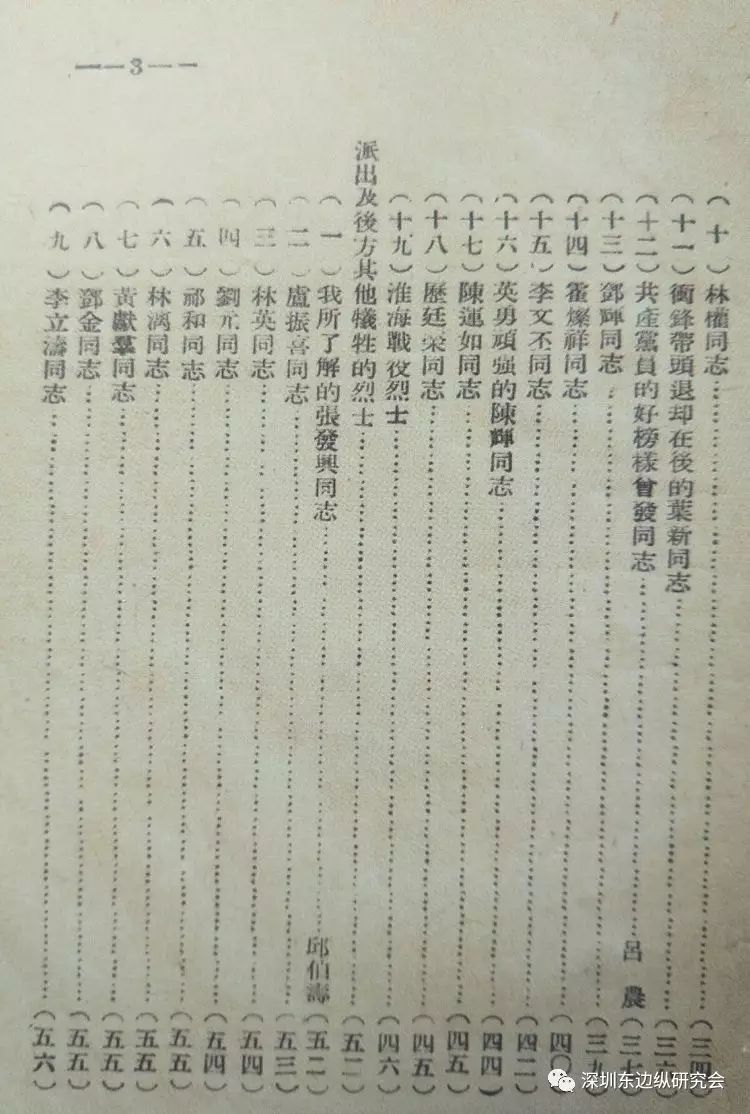 ——3——
(十)林權同志……(三四)
(十一)衝鋒帶頭退却在後的葉新同志……(三六)
(十二)共產黨員的好榜樣曾發同志……呂農(三七)
(十三)鄧輝同志……(三九)
(十四)霍燦祥同志……(四〇)
(十五)李文不同志……(四二)
(十六)英勇頑强的陳輝同志……(四四)
(十七)陳運如同志……(四五)
(十八)歷廷榮同志……(四五)
(十九)淮海戰役烈士……(四六)
派出及後方其他犧牲的烈士……(五二)
(一)我所了解的張發興同志……邱伯壽(五二)
(二)盧振喜同志……(五三)
(三)林英同志……(五四)
(四)劉元同志……(五四)
(五)祁和同志……(五五)
(六)林漓同志……(五五)
(七)黃獻羣同志……(五五)
(八)鄧金同志……(五五)
(九)李立濤同志……(五六)
深圳东边纵研究会